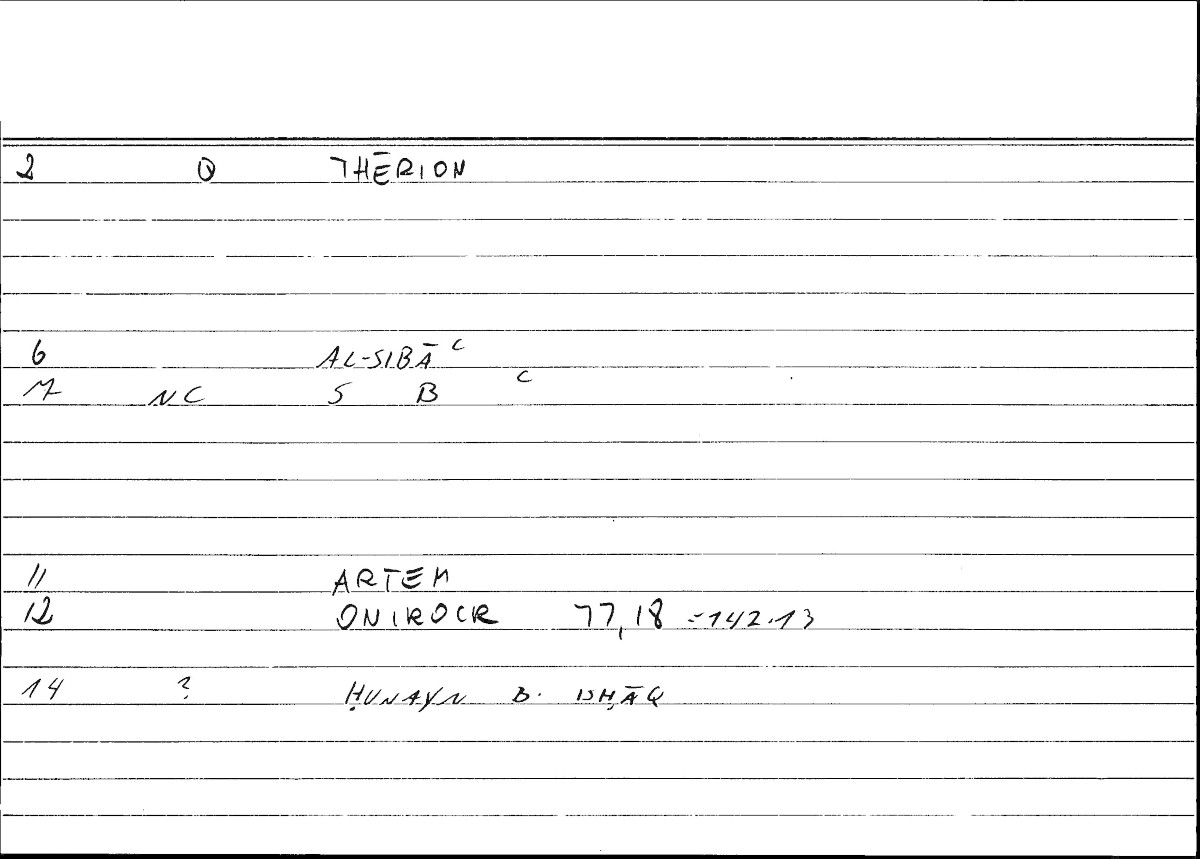 2 Q THĒRION
6 AL-SIBĀʿ
7 NC S B ʿ
11 ARTEM
12 ONIROCR 77,18 =142.13
14 ? ḤUNAYN B. ISḤĀQ